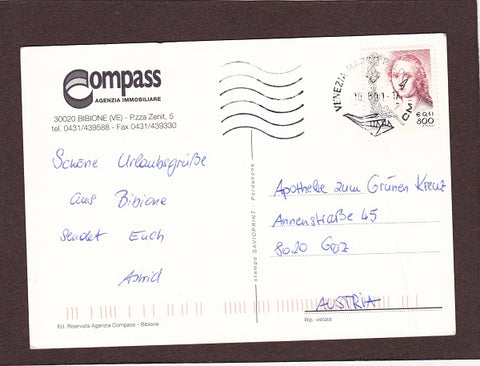 Compass
AGENZIA IMMOBILIARE
30020 BIBIONE (VE) - P.zza Zenit, 5
tel. 0431/439588 - Fax 0431/439330
Schöne Urlaubsgrüße
aus Bibione
sendet Euch
Astrid
Ed. Riservata Agenzia Compass - Bibione
stampa SAVIOPRINT - Pordenone
VENEZIA
ITALIA
800
Apotheke zum Grünen Kreuz
Annenstraße 45
8020 Graz
AUSTRIA
Rip. vietata